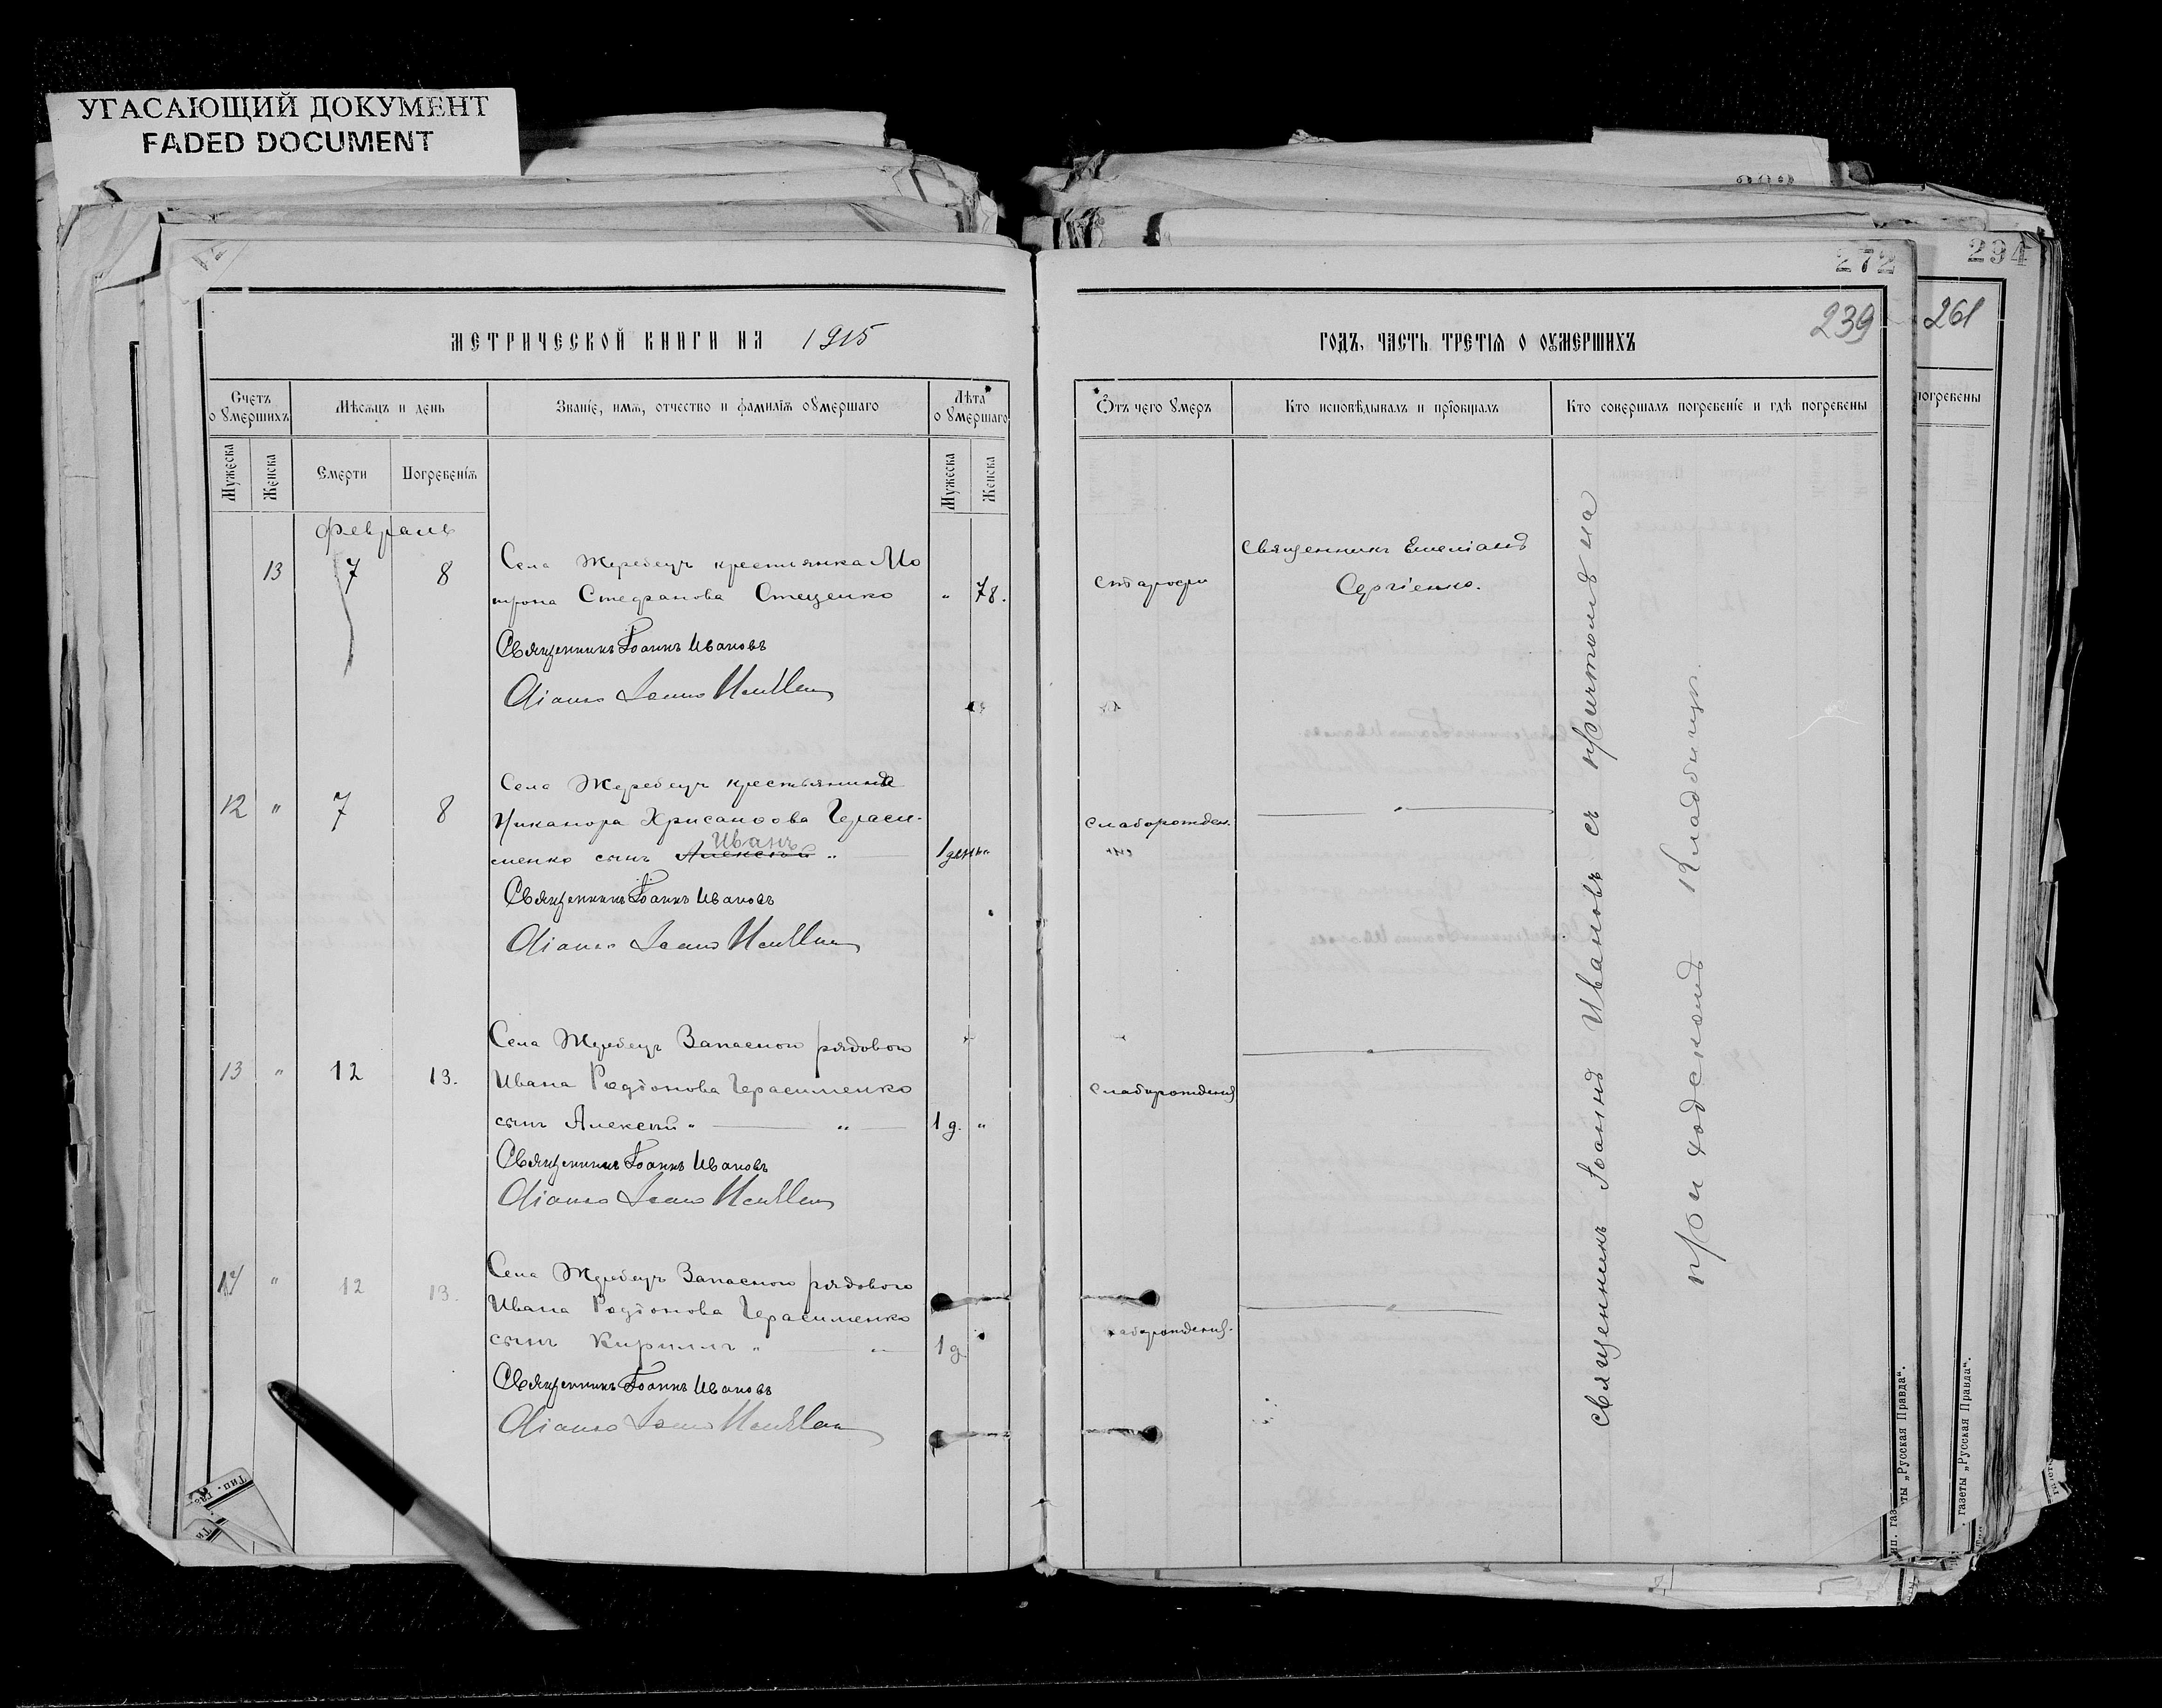 УГАСАЮЩИЙ ДОКУМЕНТ
FADED DOCUMENT
272
294
239
261
МЕТРИЧЕСКОЙ КНИГИ НА 1915
ГОДЪ, ЧАСТЬ ТРЕТІѦ О ОУМЕРШИХЪ
Счетъ о умершихъ
Мѣсяцъ и день
Званіе, имѧ, отчество и фамиліѧ оумершаго
Лѣта оумершаго
Мужеска
Женска
Смерти
Погребеніѧ
Мужеска
Женска
Отъ чего умеръ
Кто исповѣдывалъ и пріобщалъ
Кто совершалъ погребеніе и гдѣ погребены
погребены
Февраль
13 7 8
Села Жеребецъ крестьянка Мо
трона Стефанова Стеценко " 78.
Старости
Священникъ Емеліанъ
Сергіенко.
Священникъ Іоаннъ Ивановъ
12 " 7 8
Села Жеребецъ крестьянина
Никанора Хрисанѳова Гераси-
Иванъ
менко сынъ Алексѣй " 1 день "
слаборожден.
Священникъ Іоаннъ Ивановъ
13 " 12 13.
Села Жеребецъ Запасного рядового
Ивана Родіонова Герасименко
сынъ Алексѣй " " 1 д. "
слаборожденія
Священникъ Іоаннъ Ивановъ
14 " 12 13.
Села Жеребецъ Запасного рядового
Ивана Родіонова Герасименко
сынъ Кириллъ " " 1 д.
слаборожденія.
Священникъ Іоаннъ Ивановъ
священникъ Іоаннъ Ивановъ съ причтомъ на
приходскомъ кладбищѣ.
газеты „Русская Правда“.